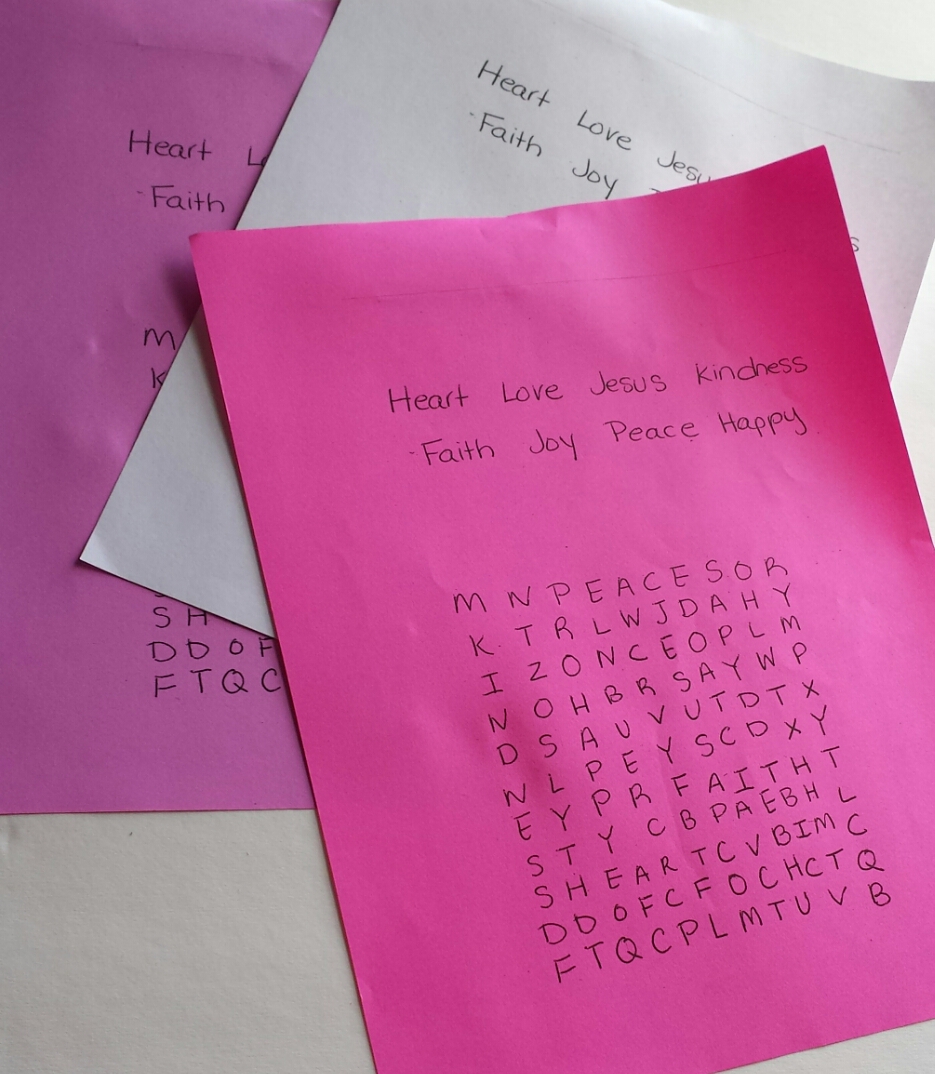 Heart Love Jesus Kindness
Faith Joy Peace Happy
M N P E A C E S O R
K T R L W J D A H Y
I Z O N C E O P L M
N O H B R S A Y W P
D S A U V U T D T X
N L P E Y S C D X Y
E Y P R F A I T H T
S T Y C B P A E B H L
S H E A R T C V B I M C
D D O F C F O C H C T Q
F T Q C P L M T U V B
Heart Love
Faith Joy
s
Heart
Faith
M
K
S H
D D O F
F T Q C